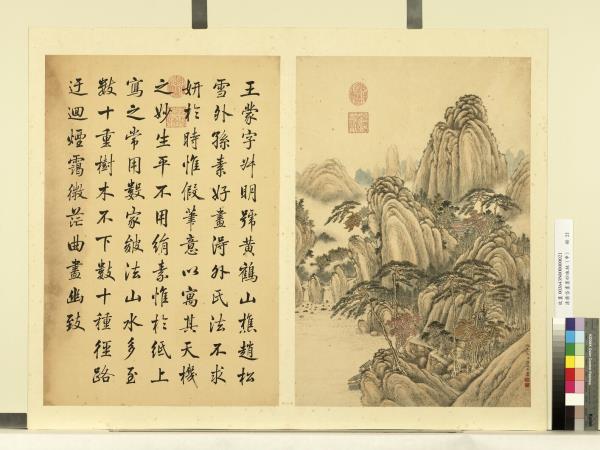 王蒙字叔明號黃鶴山樵趙松
雪外孫素好畫得外氏法不求
妍於時惟假筆意以寓其天機
之妙生平不用絹素惟於紙上
寫之常用數家皴法山水多至
數十重樹木不下數十種徑路
迂迴煙靄微茫曲盡幽致